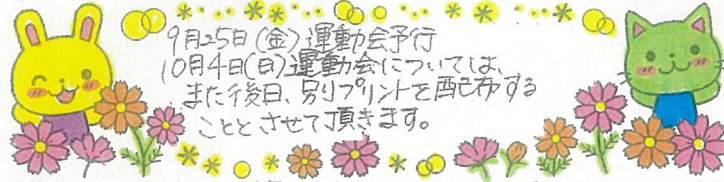 9月25日(金)運動会予行
10月4日(日)運動会については、
また後日、別プリントを配布する
こととさせて頂きます。